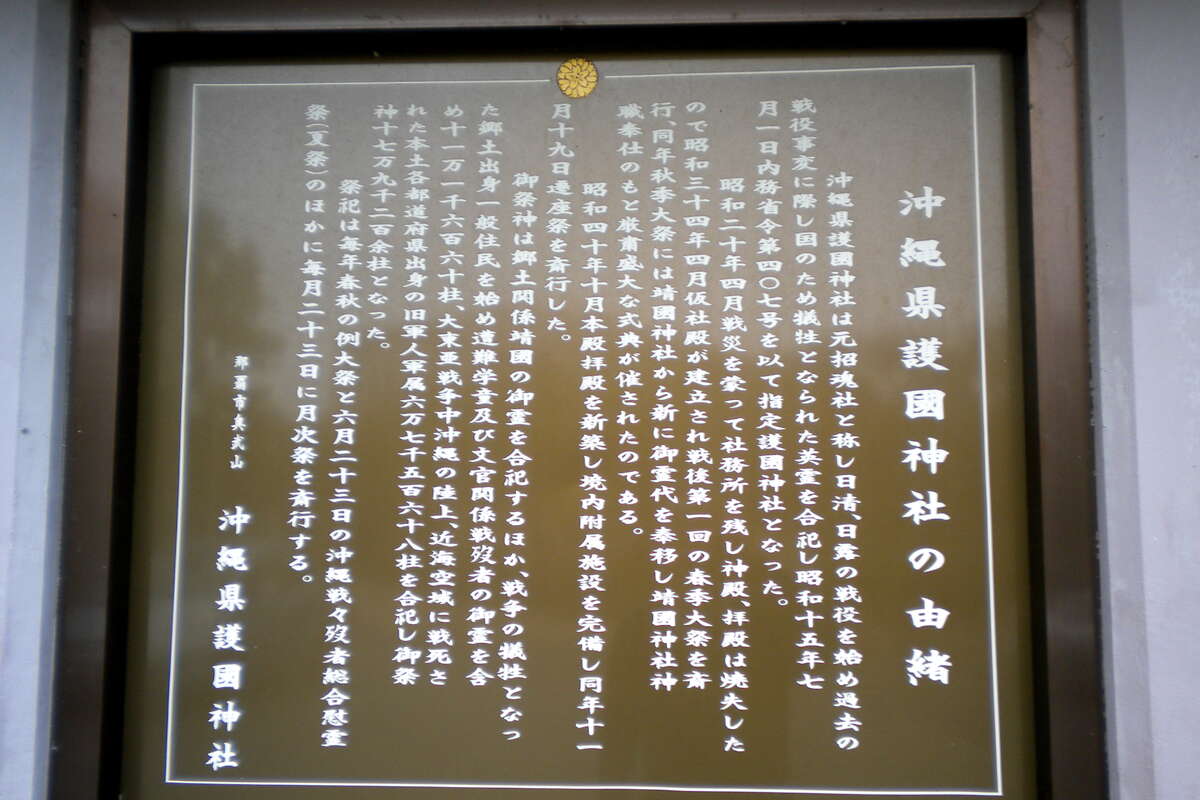 沖縄県護國神社の由緒
沖縄県護國神社は元招魂社と称し日清、日露の戦役を始め過去の
戦役事変に際し国のため犠牲となられた英霊を合祀し昭和十五年七
月一日内務省令第四〇七号を以て指定護國神社となった。
昭和二十年四月戦災を蒙って社務所を残し神殿、拝殿は焼失した
ので昭和三十四年四月仮社殿が建立され戦後第一回の春季大祭を斎
行、同年秋季大祭には靖國神社から新に御霊代を奉移し靖國神社神
職奉仕のもと厳粛盛大な式典が催されたのである。
昭和四十年十月本殿拝殿を新築し境内附属施設を完備し同年十一
月十九日遷座祭を斎行した。
御祭神は郷土関係靖國の御霊を合祀するほか、戦争の犠牲となっ
た郷土出身一般住民を始め遭難学童及び文官関係戦歿者の御霊を含
め十一万一千六百六十柱、大東亜戦争中沖縄の陸上、近海空域に戦死さ
れた本土各都道府県出身の旧軍人軍属六万七千五百六十八柱を合祀し御祭
神十七万九千二百余柱となった。
祭祀は毎年春秋の例大祭と六月二十三日の沖縄戦々歿者総合慰霊
祭(夏祭)のほかに毎月二十三日に月次祭を斎行する。
那覇市奥武山 沖縄県護國神社